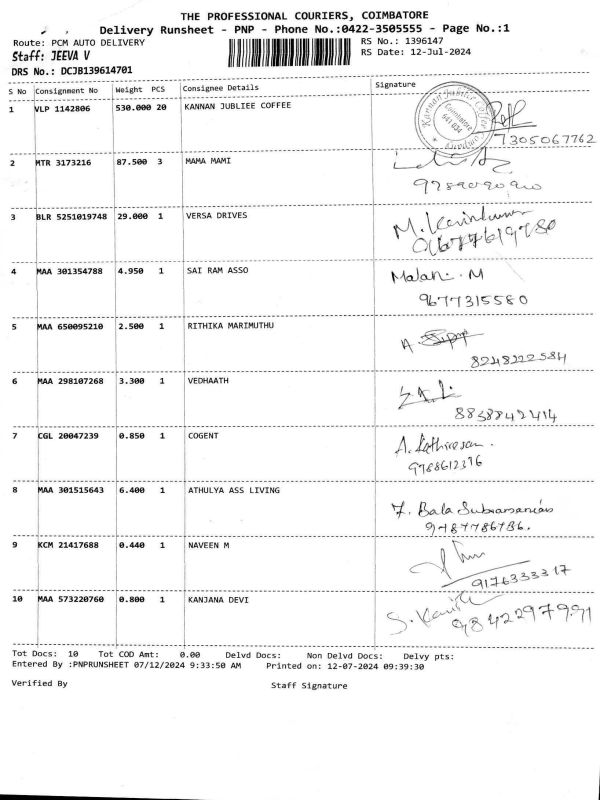 THE PROFESSIONAL COURIERS, COIMBATORE
Delivery Runsheet - PNP - Phone No.:0422-3505555 - Page No.:1
Route: PCM AUTO DELIVERY
RS No.: 1396147
Staff: JEEVA V
RS Date: 12-Jul-2024
DRS No.: DCJB139614701
S No Consignment No Weight PCS Consignee Details Signature
1 VLP 1142806 530.000 20 KANNAN JUBLIEE COFFEE
Coimbatore
641 034
7305067762
2 MTR 3173216 87.500 3 MAMA MAMI
3 BLR 5251019748 29.000 1 VERSA DRIVES
4 MAA 301354788 4.950 1 SAI RAM ASSO
Malani. M
9677315580
5 MAA 650095210 2.500 1 RITHIKA MARIMUTHU
8248222584
6 MAA 298107268 3.300 1 VEDHAATH
8838842414
7 CGL 20047239 0.850 1 COGENT
A. Kathiresan.
9788612376
8 MAA 301515643 6.400 1 ATHULYA ASS LIVING
7. Bala Subramanian
9487786786.
9 KCM 21417688 0.440 1 NAVEEN M
9176333317
10 MAA 573220760 0.800 1 KANJANA DEVI
9842297991
Tot Docs: 10 Tot COD Amt: 0.00 Delvd Docs: Non Delvd Docs: Delvy pts:
Entered By :PNPRUNSHEET 07/12/2024 9:33:50 AM Printed on: 12-07-2024 09:39:30
Verified By Staff Signature